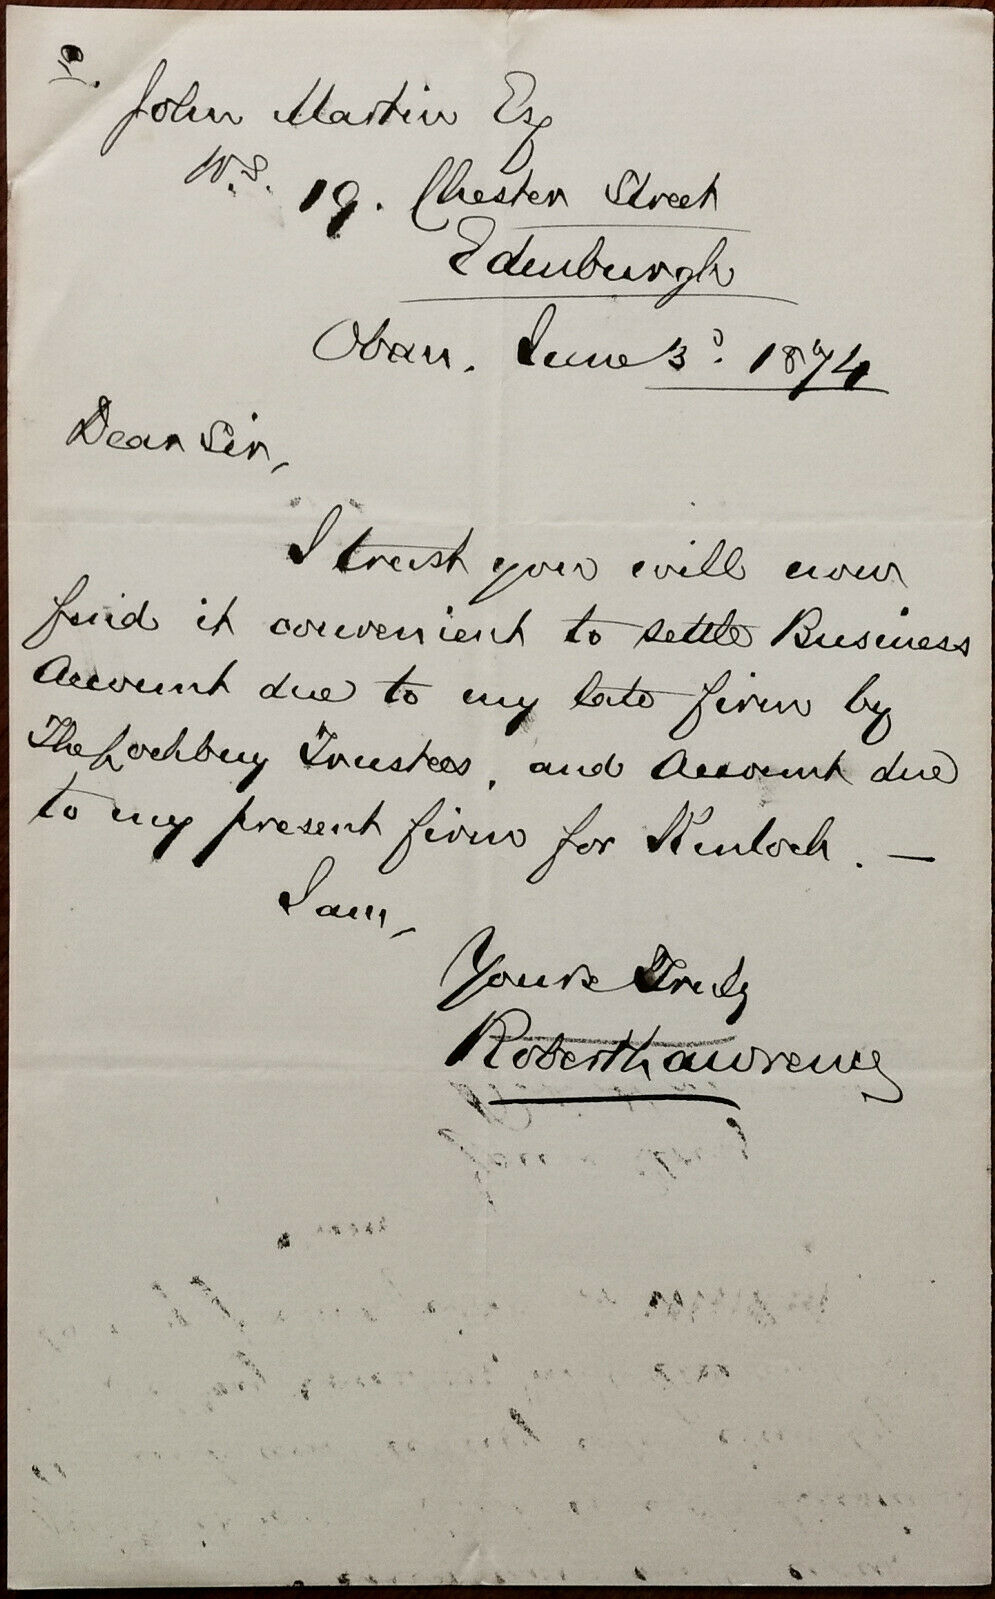 John Martin Esq
W.S. 19. Chester Street
Edinburgh
Oban. June 3d. 1874
Dear Sir,
I trust you will now
find it convenient to settle Business
Account due to my late firm by
The Lochbuy Trustees, and Account due
to my present firm for Kinloch. —
I am,
Yours Truly
Robert Lawrence